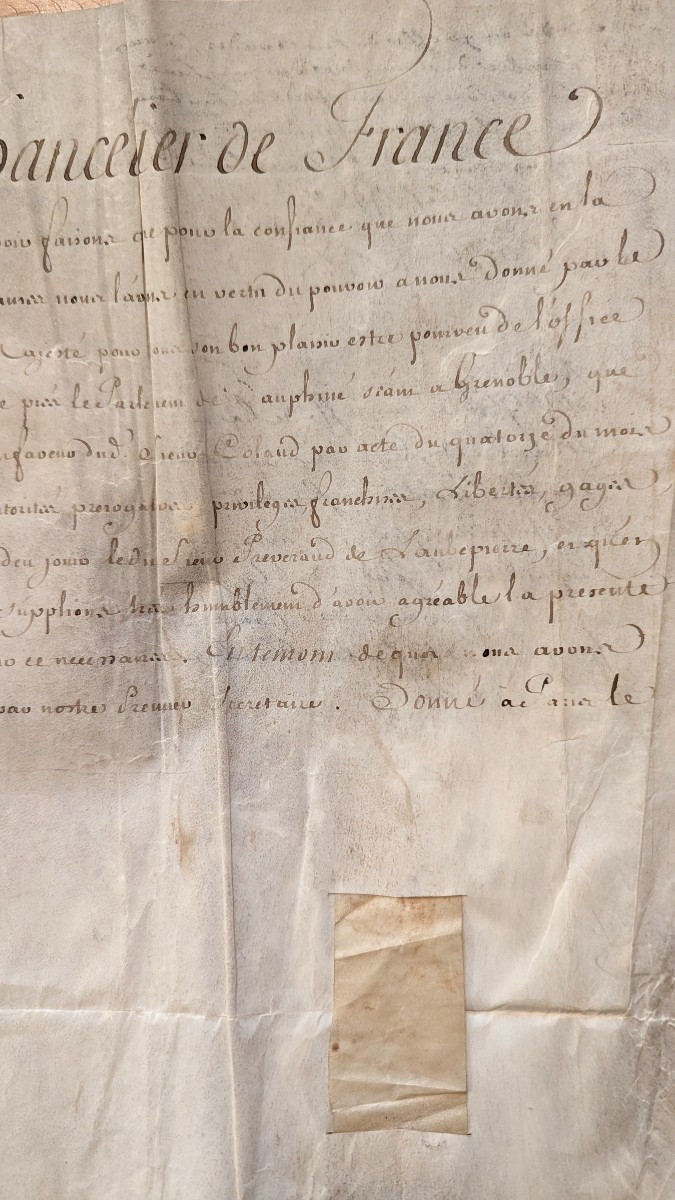 ancelier de France
faisons que pour la confiance que nous avons en la
nous l'avons en vertu du pouvoir a nous donné par le
Majesté pour sous son bon plaisir estre pourveu de l'office
pres le Parlement de Dauphiné seant a Grenoble, que
faveur dud. Sieur Coland par acte du quatorze du mois
prerogatives privileges, franchises, Libertés, gages
jouir led. Sieur Preveraud de Laubepierre, et qu'en
supplions tres humblement d'avoir agréable la presente
ce necessaires. En temoin de quoi nous avons
par nostre Premier Secretaire. Donné à Paris le